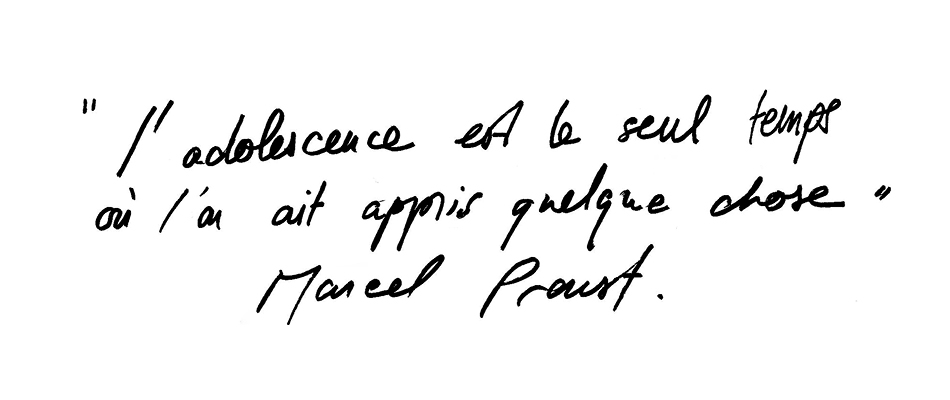 " l'adolescence est le seul temps
où l'on ait appris quelque chose "
Marcel Proust.